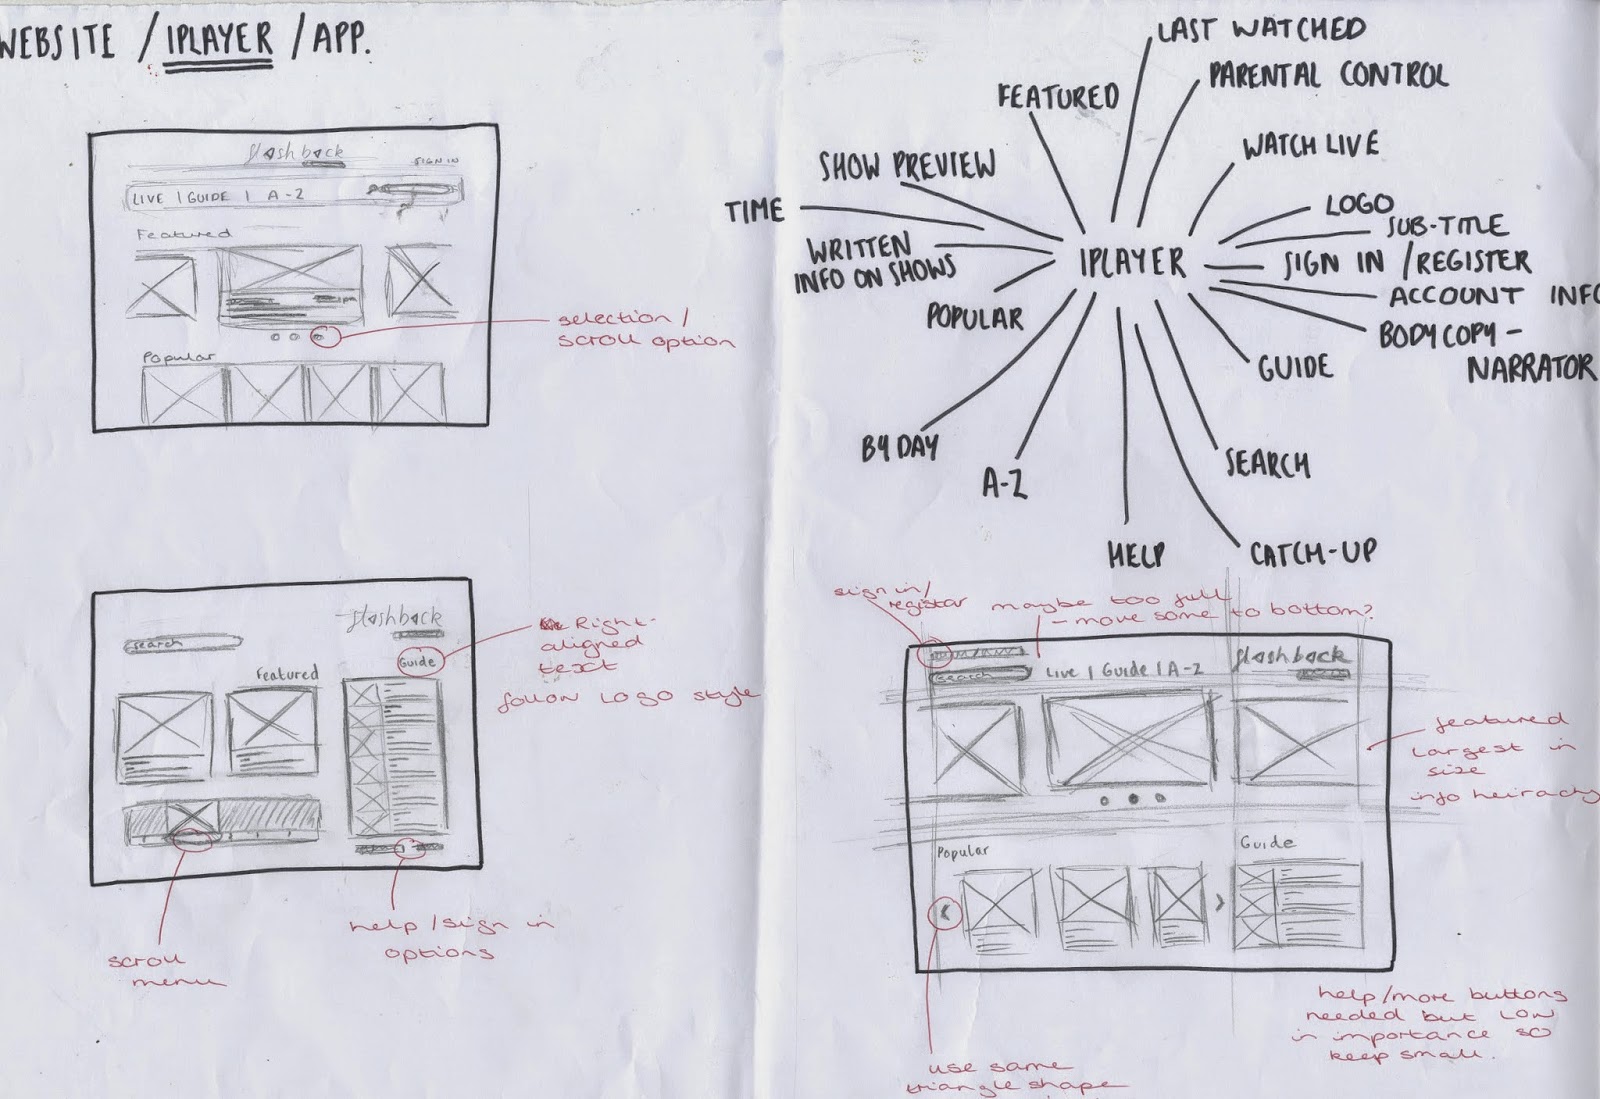 WEBSITE / IPLAYER / APP.
flashback
SIGN IN
LIVE | GUIDE | A-Z
Featured
Popular
selection /
scroll option
flashback
search
Guide
Featured
Right-
aligned
text
follow logo style
scroll
menu
help / sign in
options
LAST WATCHED
PARENTAL CONTROL
FEATURED
WATCH LIVE
SHOW PREVIEW
TIME
LOGO
SUB-TITLE
WRITTEN
INFO ON SHOWS
IPLAYER
SIGN IN / REGISTER
ACCOUNT INFO
POPULAR
BODYCOPY -
NARRATOR
GUIDE
BY DAY
A-Z
SEARCH
HELP
CATCH-UP
sign in/
registar
maybe too full
- move some to bottom?
search
Live | Guide | A-Z
flashback
featured
largest in
size
info heirachy
Popular
Guide
use same
triangle shape
help/more buttons
needed but low
in importance so
keep small.